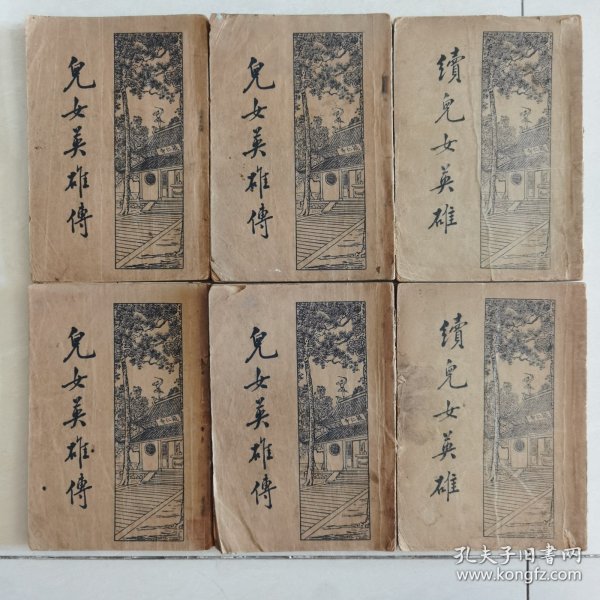 兒女英雄傳
兒女英雄傳
續兒女英雄
兒女英雄傳
兒女英雄傳
續兒女英雄
孔夫子旧书网
www.kongfz.com